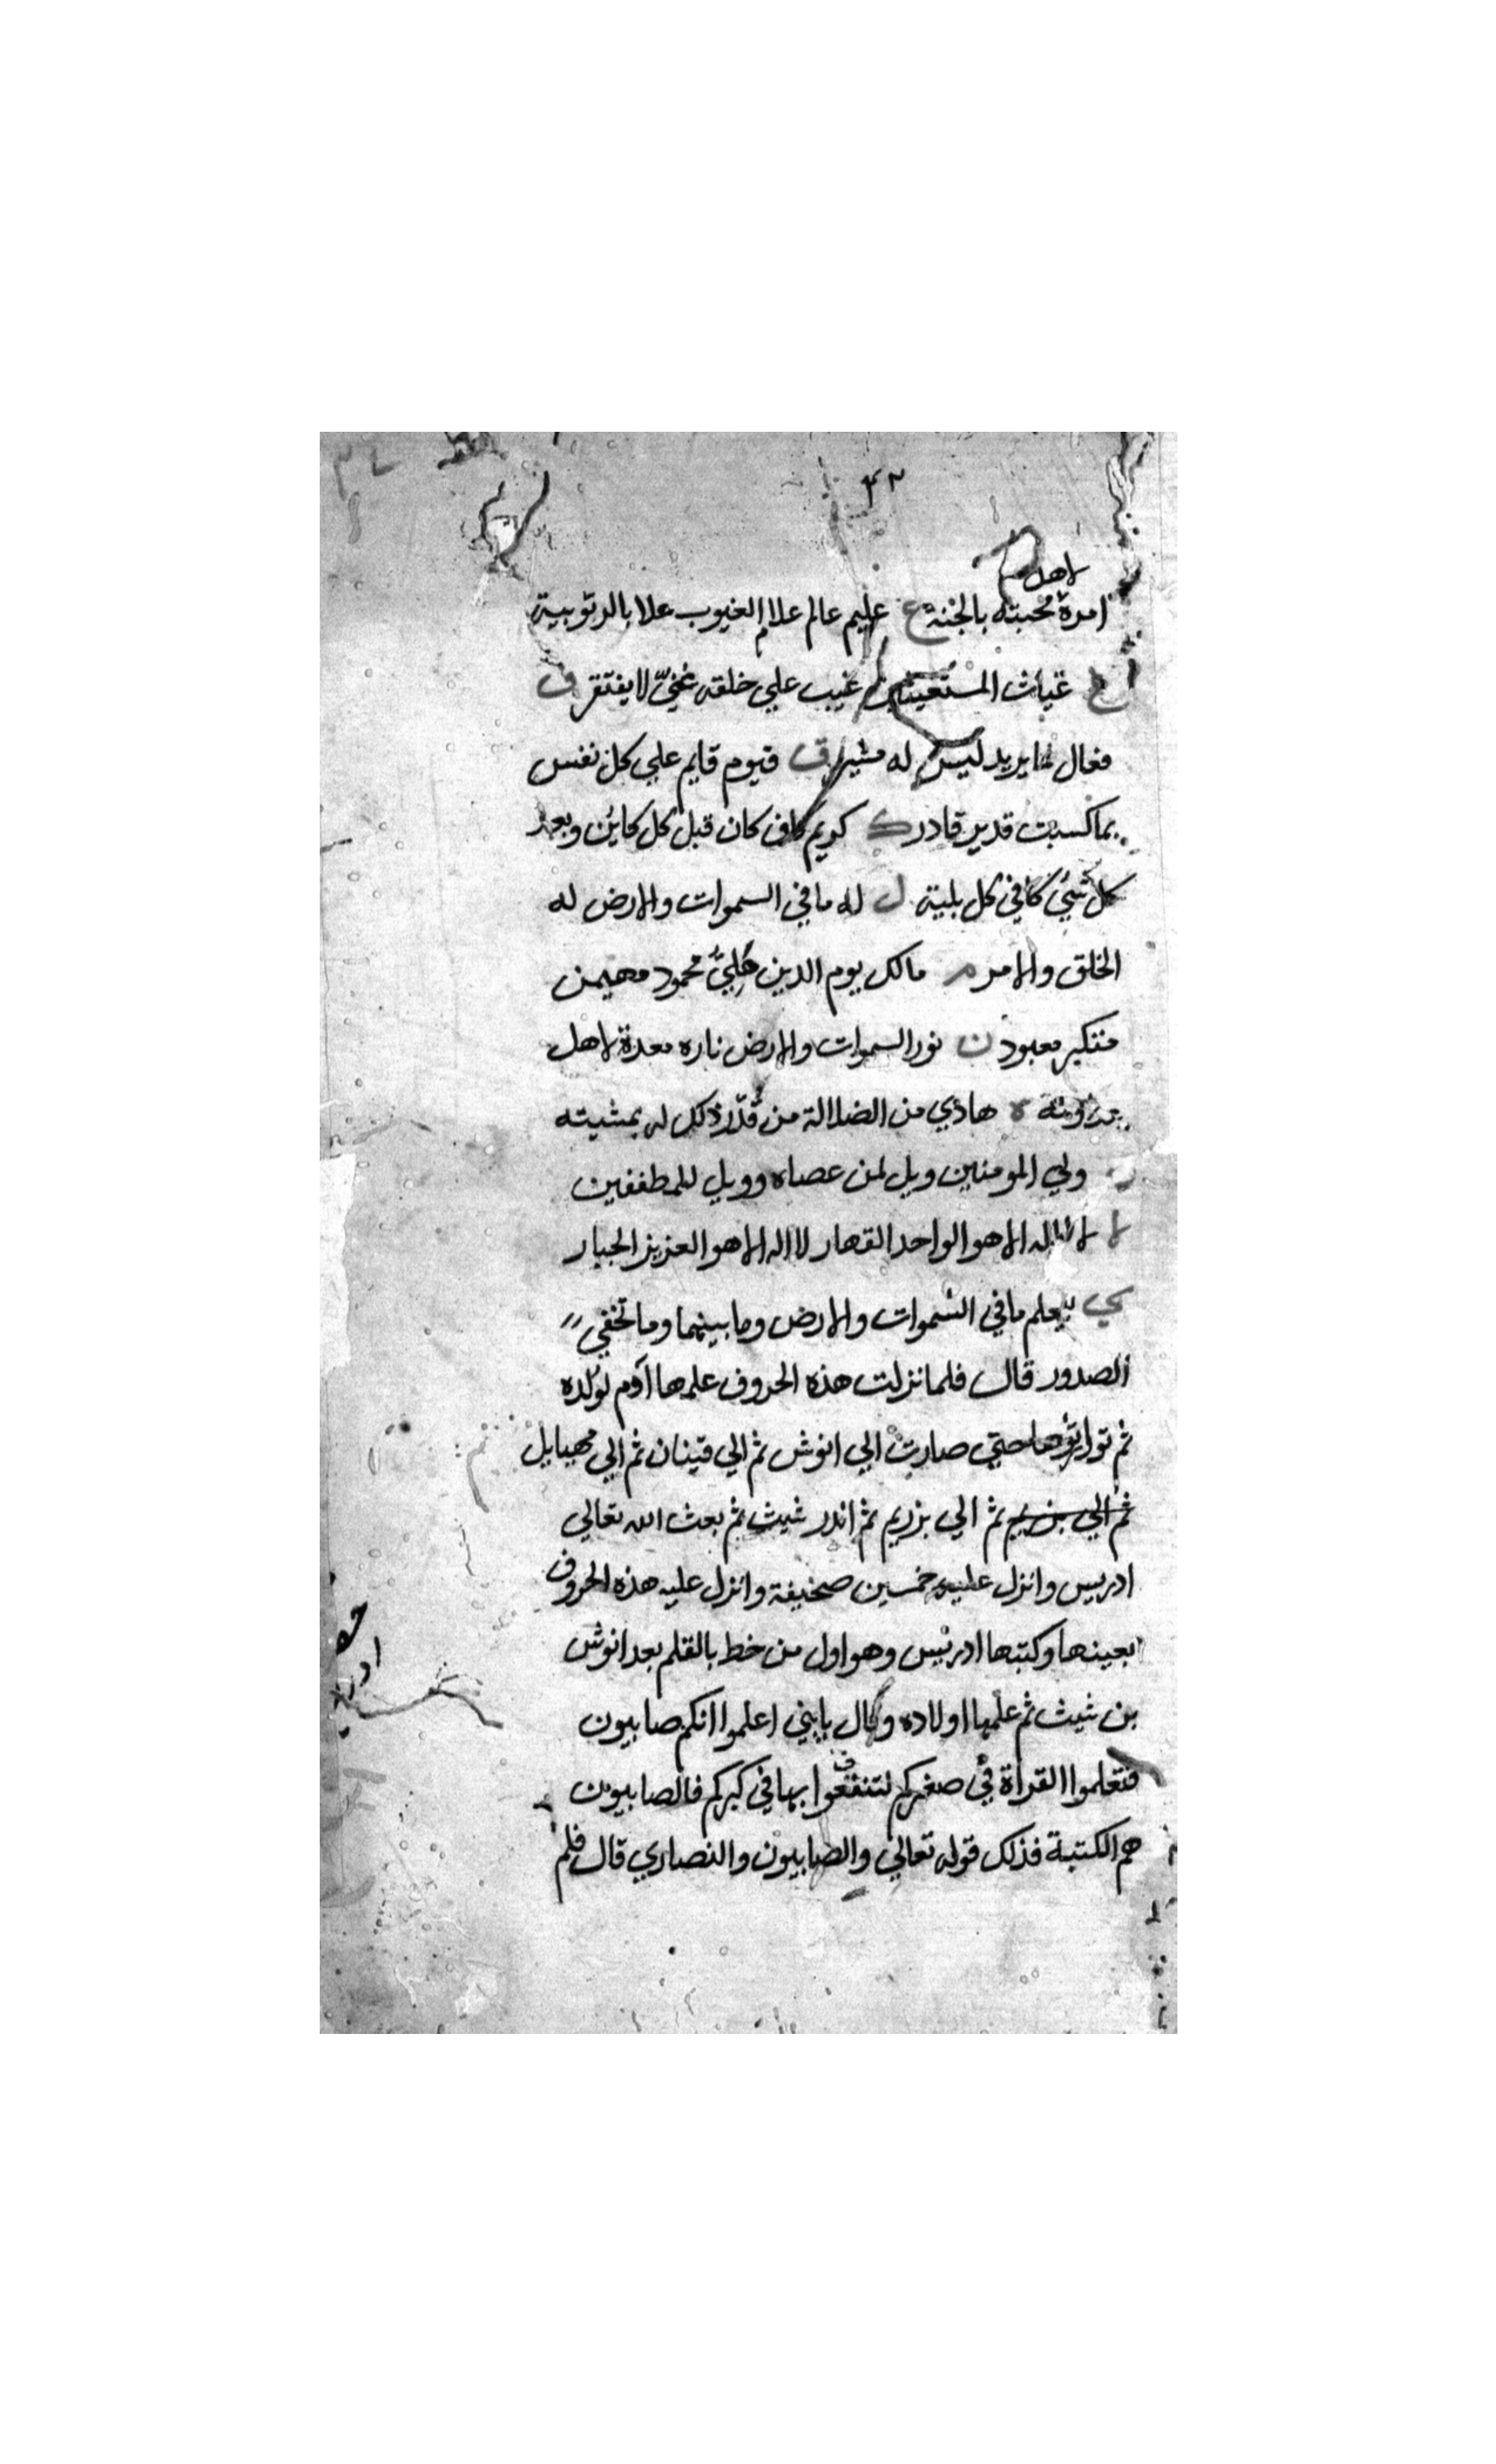 ٣٢
لاهل
امره محبته بالجنة ع عليم عالم علام الغيوب علا بالربوبية
غ غياث المستغيثين غيب علي خلقه غنيّ لا يفتقر ف
فعال لما يريد ليس له مشير ق قيوم قايم علي كل نفس
بما كسبت قدير قادر ك كريم كاف كان قبل كل كاين وبعد
كل شيء كافي كل بلية ل له ما في السموات والارض له
الخلق والامر م مالك يوم الدين محمود مهيمن
متكبر معبود ن نور السموات والارض ناره معدة لاهل
ه هادي من الضلالة من قدّر ذلك له بمشيته
و ولي المومنين ويل لمن عصاه وويل للمطففين
لا لا اله الا هو الواحد القهار لا اله الا هو العزيز الجبار
ي يعلم ما في السموات والارض وما بينهما وما تخفي
الصدور قال فلما نزلت هذه الحروف علمها آدم لولده
ثم توارثوها حتي صارت الي انوش ثم الي قينان ثم الي مهيايل
ثم الي بن يريم ثم الي بزريم ثم اندر شيث ثم بعث الله تعالي
ادريس وانزل عليه خمسين صحيفة وانزل عليه هذه الحروف
بعينها وكتبها ادريس وهو اول من خط بالقلم بعد انوش
بن شيث ثم علمها اولاده وقال يابني اعلموا انكم صابيون
فتعلموا القراة في صغركم لتنتفعوا بها في كبركم فالصابيون
هم الكتبة فذلك قوله تعالي والصابيون والنصاري قال فلم